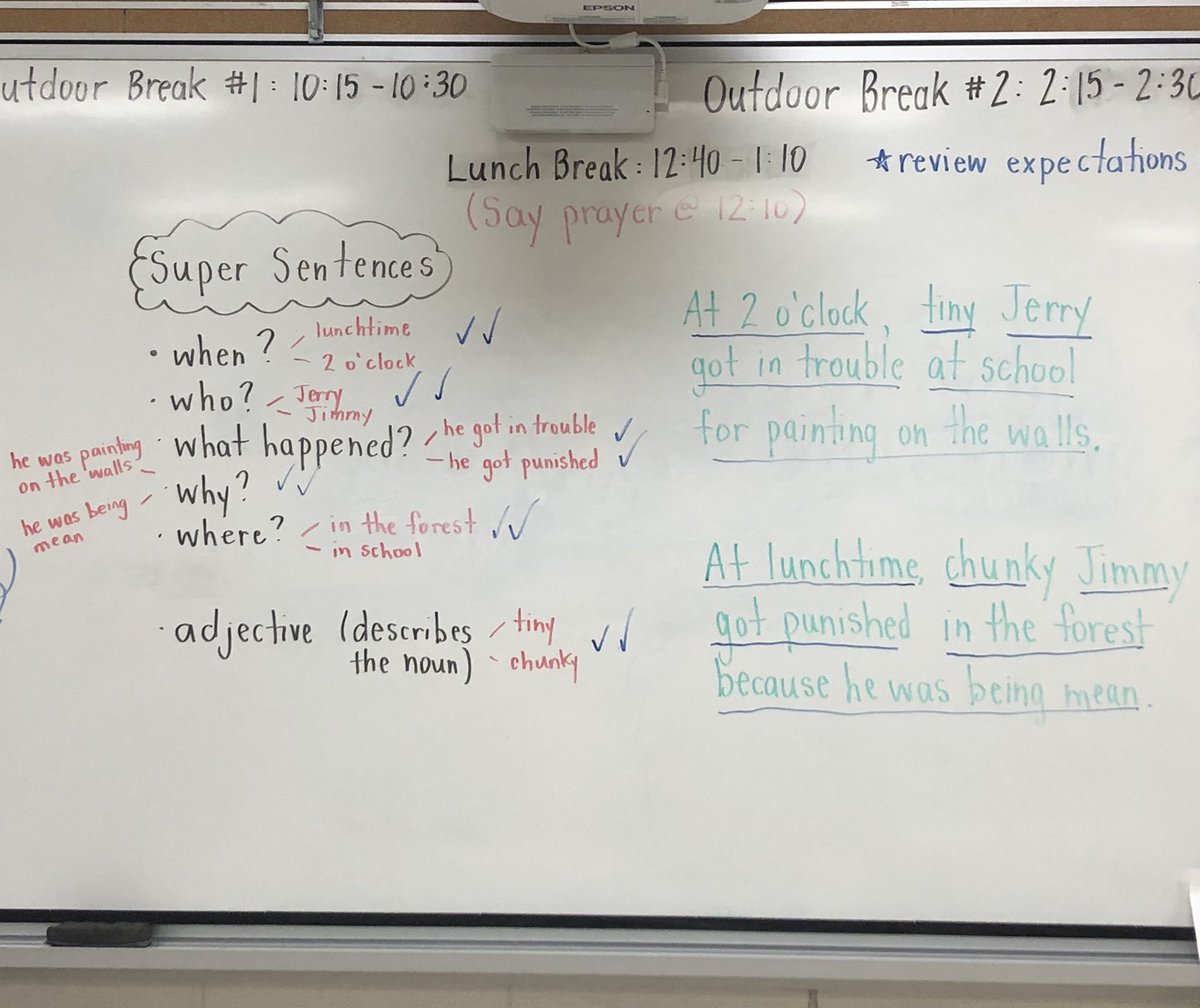 EPSON
utdoor Break #1: 10:15 - 10:30
Outdoor Break #2: 2:15 - 2:30
Lunch Break: 12:40 - 1:10
☆review expectations
(Say prayer @ 12:10)
Super Sentences
• when? / lunchtime ✓✓
– 2 o'clock
• who? – Jerry ✓✓
– Jimmy
• what happened? / he got in trouble ✓
– he got punished ✓
he was painting
on the walls –
• why? ✓✓
he was being /
mean
• where? / in the forest ✓✓
– in school
• adjective (describes / tiny ✓✓
the noun) – chunky
At 2 o'clock, tiny Jerry
got in trouble at school
for painting on the walls.
At lunchtime, chunky Jimmy
got punished in the forest
because he was being mean.